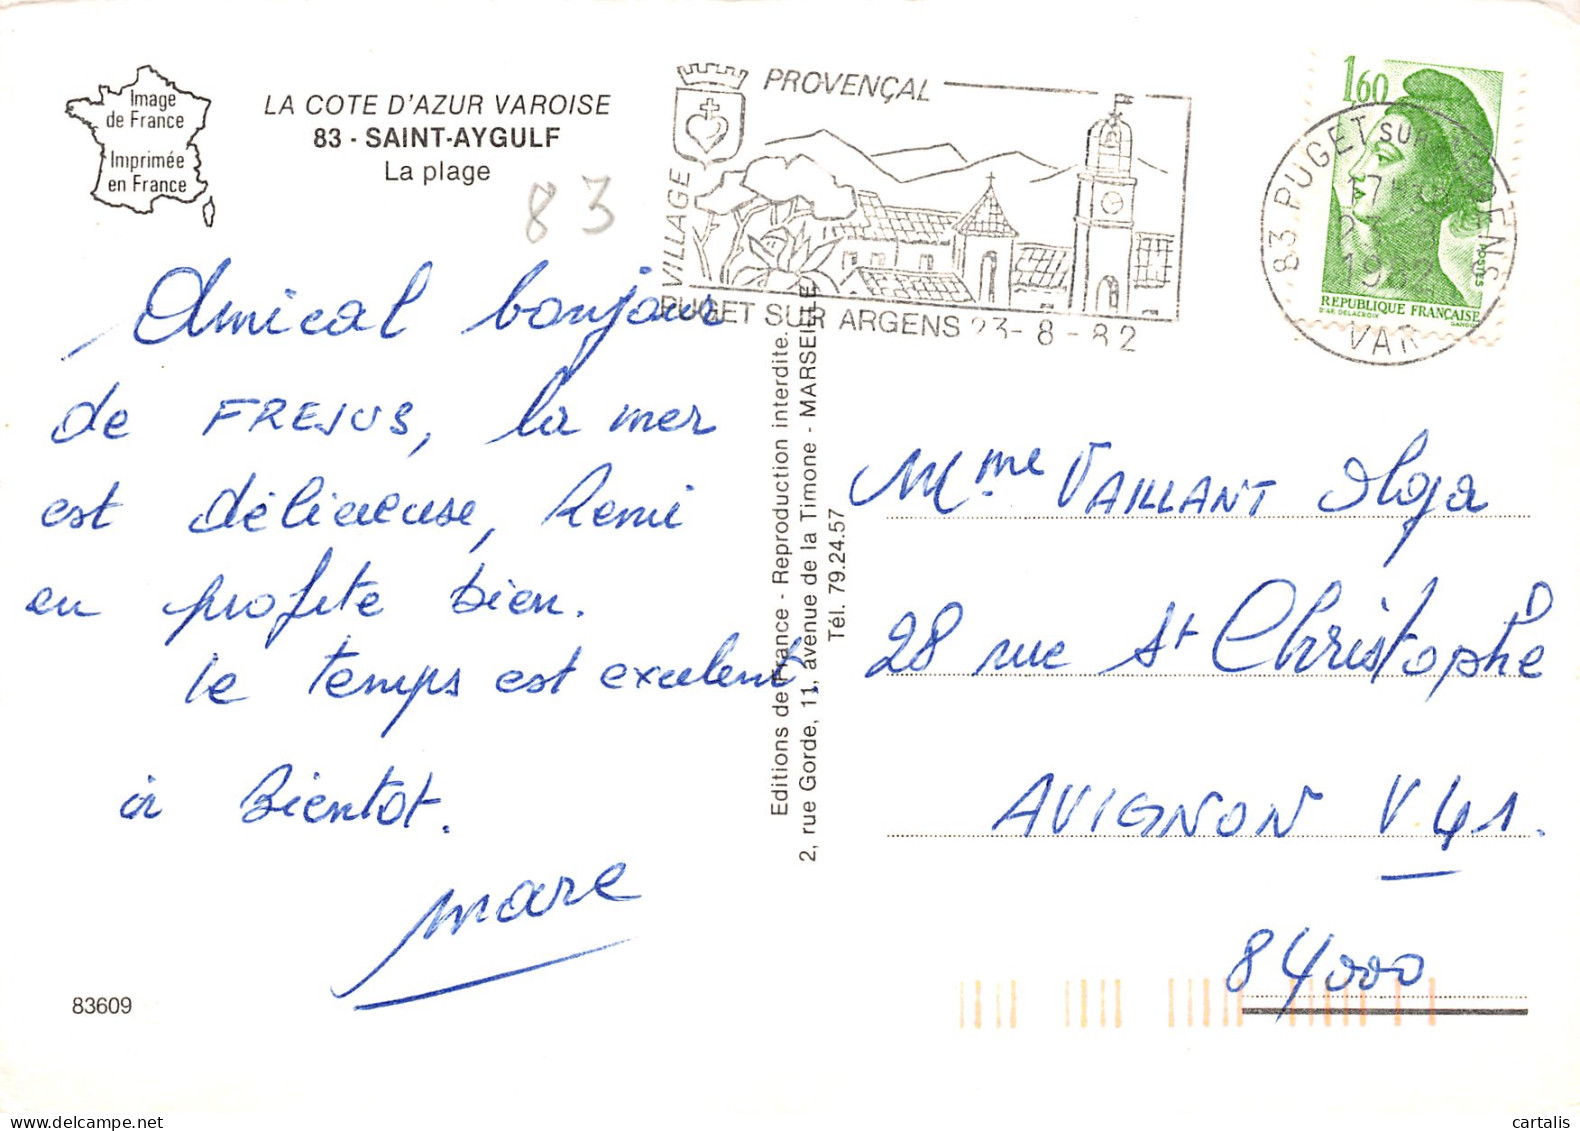 Image
de France
Imprimée
en France
LA COTE D'AZUR VAROISE
83 - SAINT-AYGULF
La plage
83
VILLAGE
PROVENÇAL
PUGET SUR ARGENS 23-8-82
1,60
POSTES
REPUBLIQUE FRANÇAISE
D'AP. DELACROIX
GANDON
83 PUGET SUR ARGENS
17H
23 8
1982
VAR
Amical bonjour
de FREJUS, la mer
est délicieuse, Remi
en profite bien.
le temps est excelent,
à Bientot.
Marc
83609
Editions de France - Reproduction interdite.
2, rue Gorde, 11, avenue de la Timone - MARSEILLE
Tél. 79.24.57
Mme VAILLANT Olga
28 rue St Christophe
AVIGNON V.41.
84000
cartalis